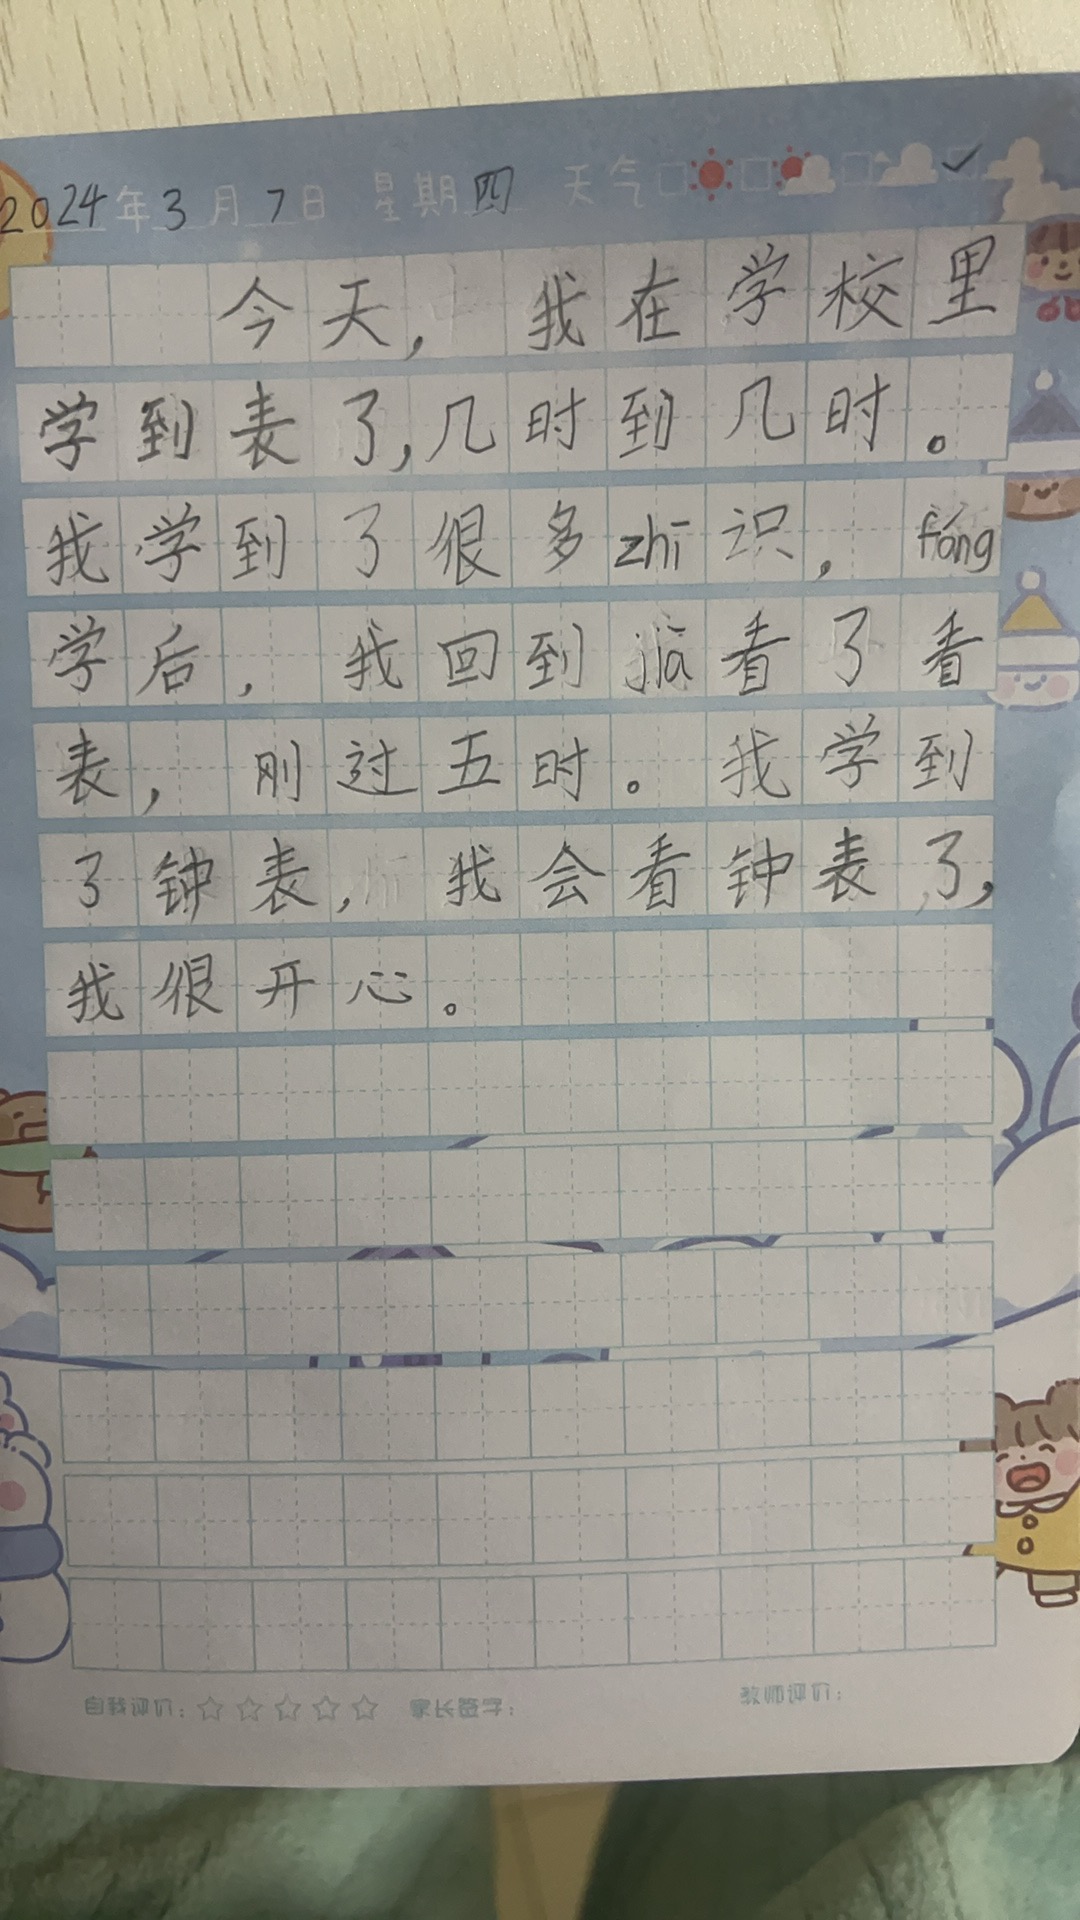 2024年3月7日 星期四 天气
今天，我在学校里
学到表了,几时到几时。
我学到了很多zhī识，fáng
学后，我回到jiā看了看
表，刚过五时。我学到
了钟表,我会看钟表了,
我很开心。
自我评价：☆☆☆☆☆ 家长签字： 教师评价：